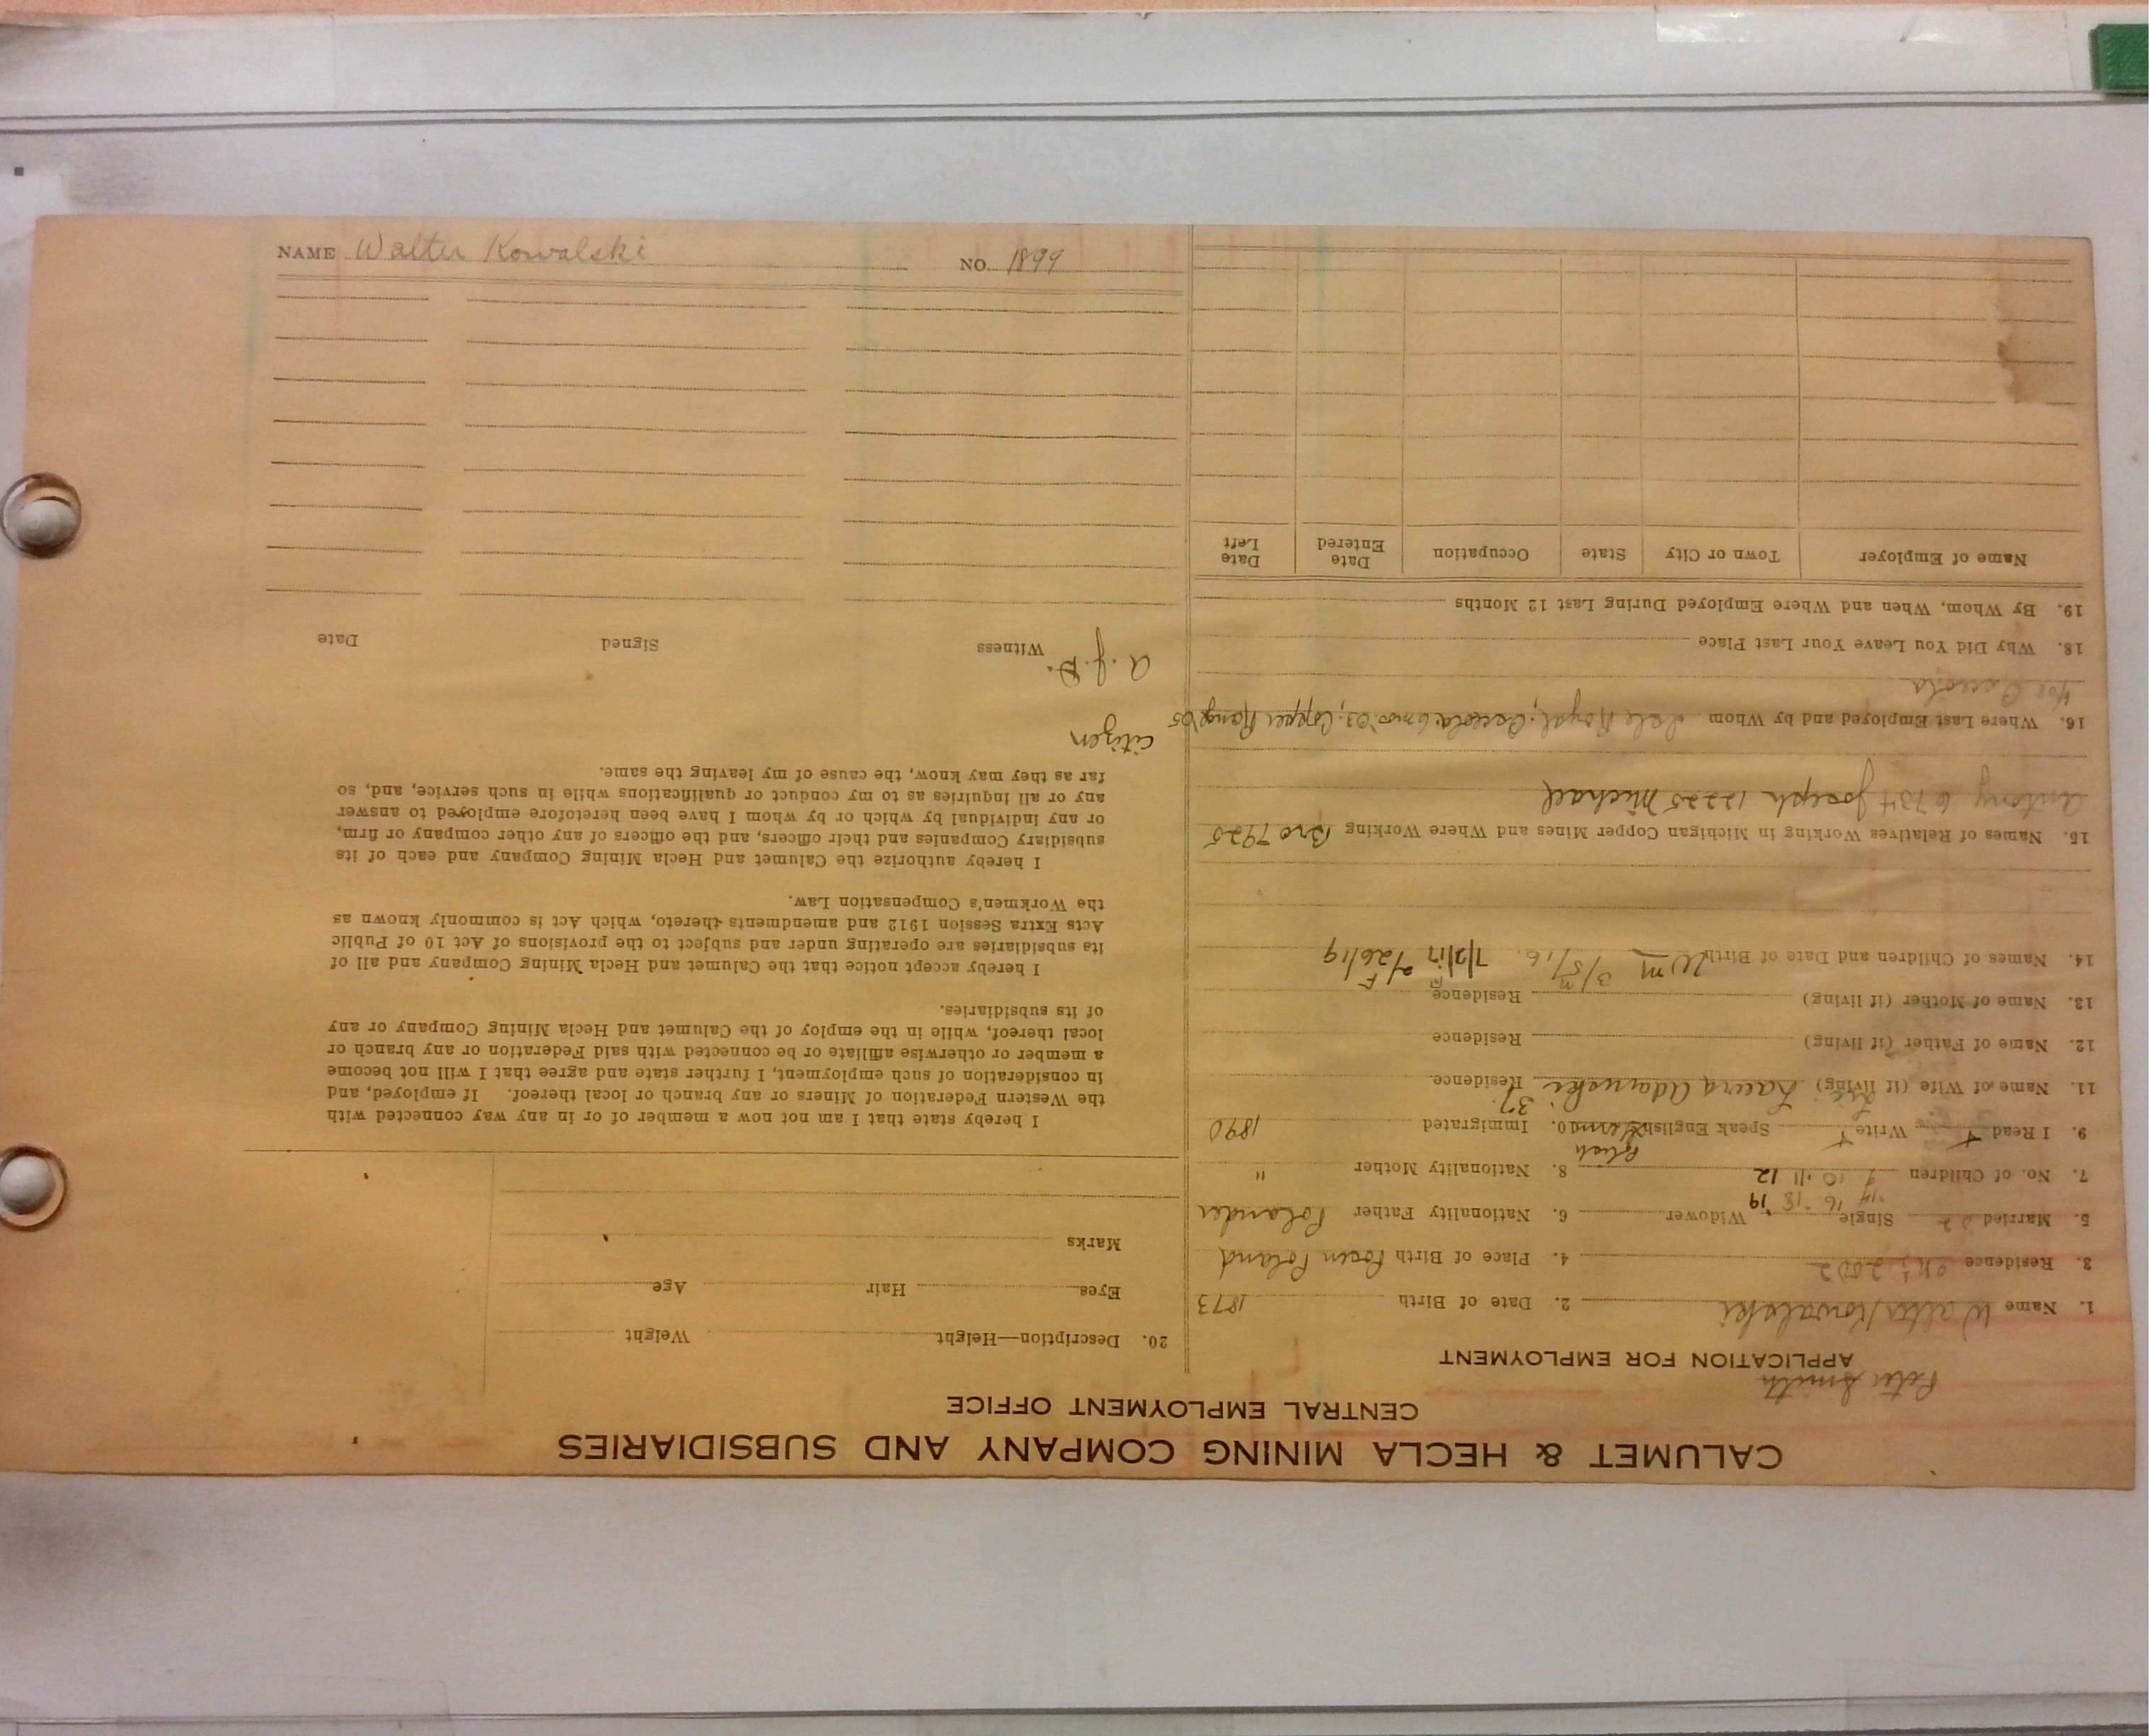 CALUMET & HECLA MINING COMPANY AND SUBSIDIARIES
CENTRAL EMPLOYMENT OFFICE
Peter Smith
APPLICATION FOR EMPLOYMENT
1. Name Walter Kowalski 2. Date of Birth 1873
3. Residence 4. Place of Birth Posen Poland
5. Married Single Widower 6. Nationality Father Polander
'14 '16 '18 '19
7. No. of Children 9 10 11 12 8. Nationality Mother "
Polish
9. I Read + Write + Speak English 10. Immigrated 1890
37
11. Name of Wife (if living) Laura Adamski Residence
12. Name of Father (if living) Residence
13. Name of Mother (if living) Residence
14. Names of Children and Date of Birth Wm 3/5/16. 7/2/17 2/26/19
M F F
15. Names of Relatives Working in Michigan Copper Mines and Where Working Bro 7925
Antony 6734 Joseph 12225 Michael
16. Where Last Employed and by Whom Isle Royal, Osceola 6 mos. '03; Copper Range '05
Osceola
18. Why Did You Leave Your Last Place
19. By Whom, When and Where Employed During Last 12 Months
Name of Employer Town or City State Occupation Date Entered Date Left
20. Description—Height Weight
Eyes Hair Age
Marks
I hereby state that I am not now a member of or in any way connected with
the Western Federation of Miners or any branch or local thereof. If employed, and
in consideration of such employment, I further state and agree that I will not become
a member or otherwise affiliate or be connected with said Federation or any branch or
local thereof, while in the employ of the Calumet and Hecla Mining Company or any
of its subsidiaries.
I hereby accept notice that the Calumet and Hecla Mining Company and all of
its subsidiaries are operating under and subject to the provisions of Act 10 of Public
Acts Extra Session 1912 and amendments thereto, which Act is commonly known as
the Workmen's Compensation Law.
I hereby authorize the Calumet and Hecla Mining Company and each of its
subsidiary Companies and their officers, and the officers of any other company or firm,
or any individual by which or by whom I have been heretofore employed to answer
any or all inquiries as to my conduct or qualifications while in such service, and, so
far as they may know, the cause of my leaving the same.
citizen
a. J. D.
Witness Signed Date
NAME Walter Kowalski NO. 1899